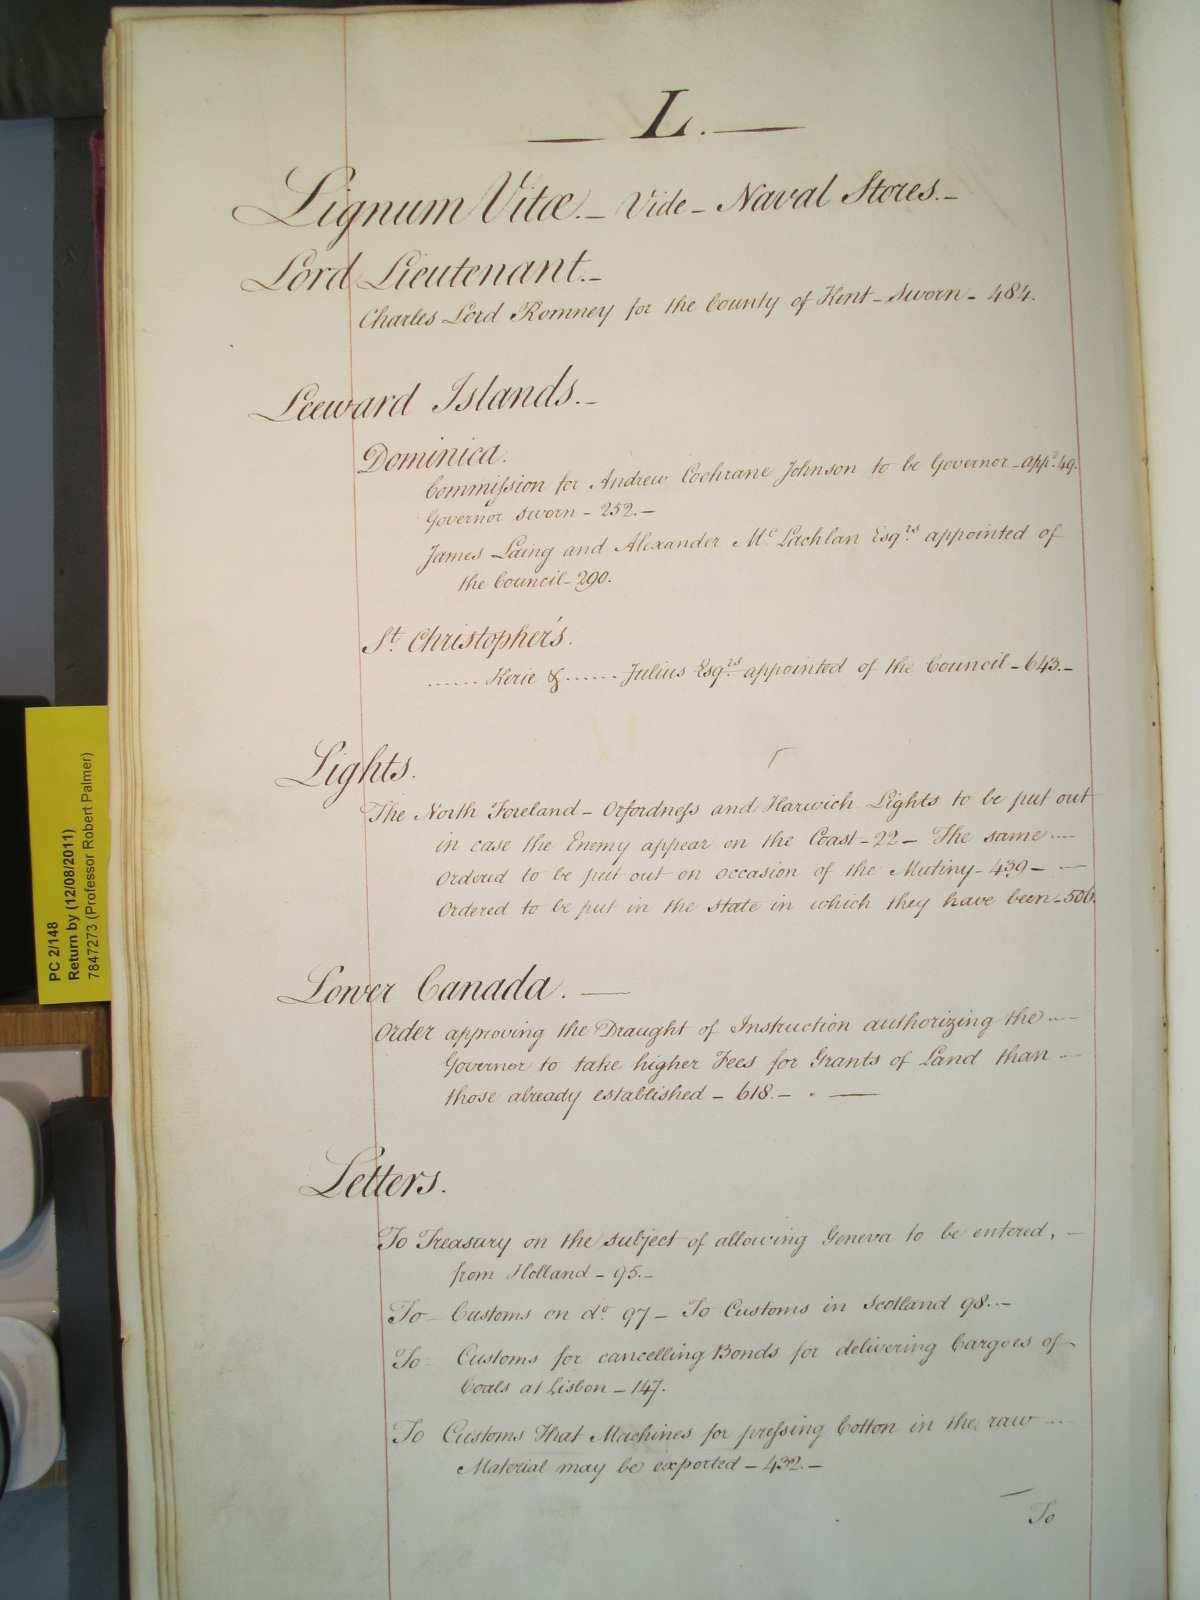 L.
Lignum Vitæ. – Vide – Naval Stores. –
Lord Lieutenant. –
Charles Lord Romney for the County of Kent – Sworn – 484.
Leeward Islands. –
Dominica.
Commission for Andrew Cochrane Johnson to be Governor – appd. 49.
Governor sworn – 252. –
James Laing and Alexander Mc. Lachlan Esqrs. appointed of
the Council – 290.
St. Christopher's.
...... Kerie & ...... Julius Esqrs. appointed of the Council – 643. –
Lights.
The North Foreland – Orfordness and Harwich Lights to be put out
in case the Enemy appear on the Coast – 22 – The same
Ordered to be put out on occasion of the Mutiny – 439 –
Ordered to be put in the state in which they have been – 506.
Lower Canada. —
Order approving the Draught of Instruction authorizing the
Governor to take higher Fees for Grants of Land than
those already established – 618. –
Letters.
To Treasury on the subject of allowing Geneva to be entered,
from Holland – 95. –
To Customs on do. 97 – To Customs in Scotland 98. –
To Customs for cancelling Bonds for delivering Cargoes of
Coals at Lisbon – 147.
To Customs That Machines for pressing Cotton in the raw
Material may be exported – 432. –
To
PC 2/148
Return by (12/08/2011)
7847273 (Professor Robert Palmer)